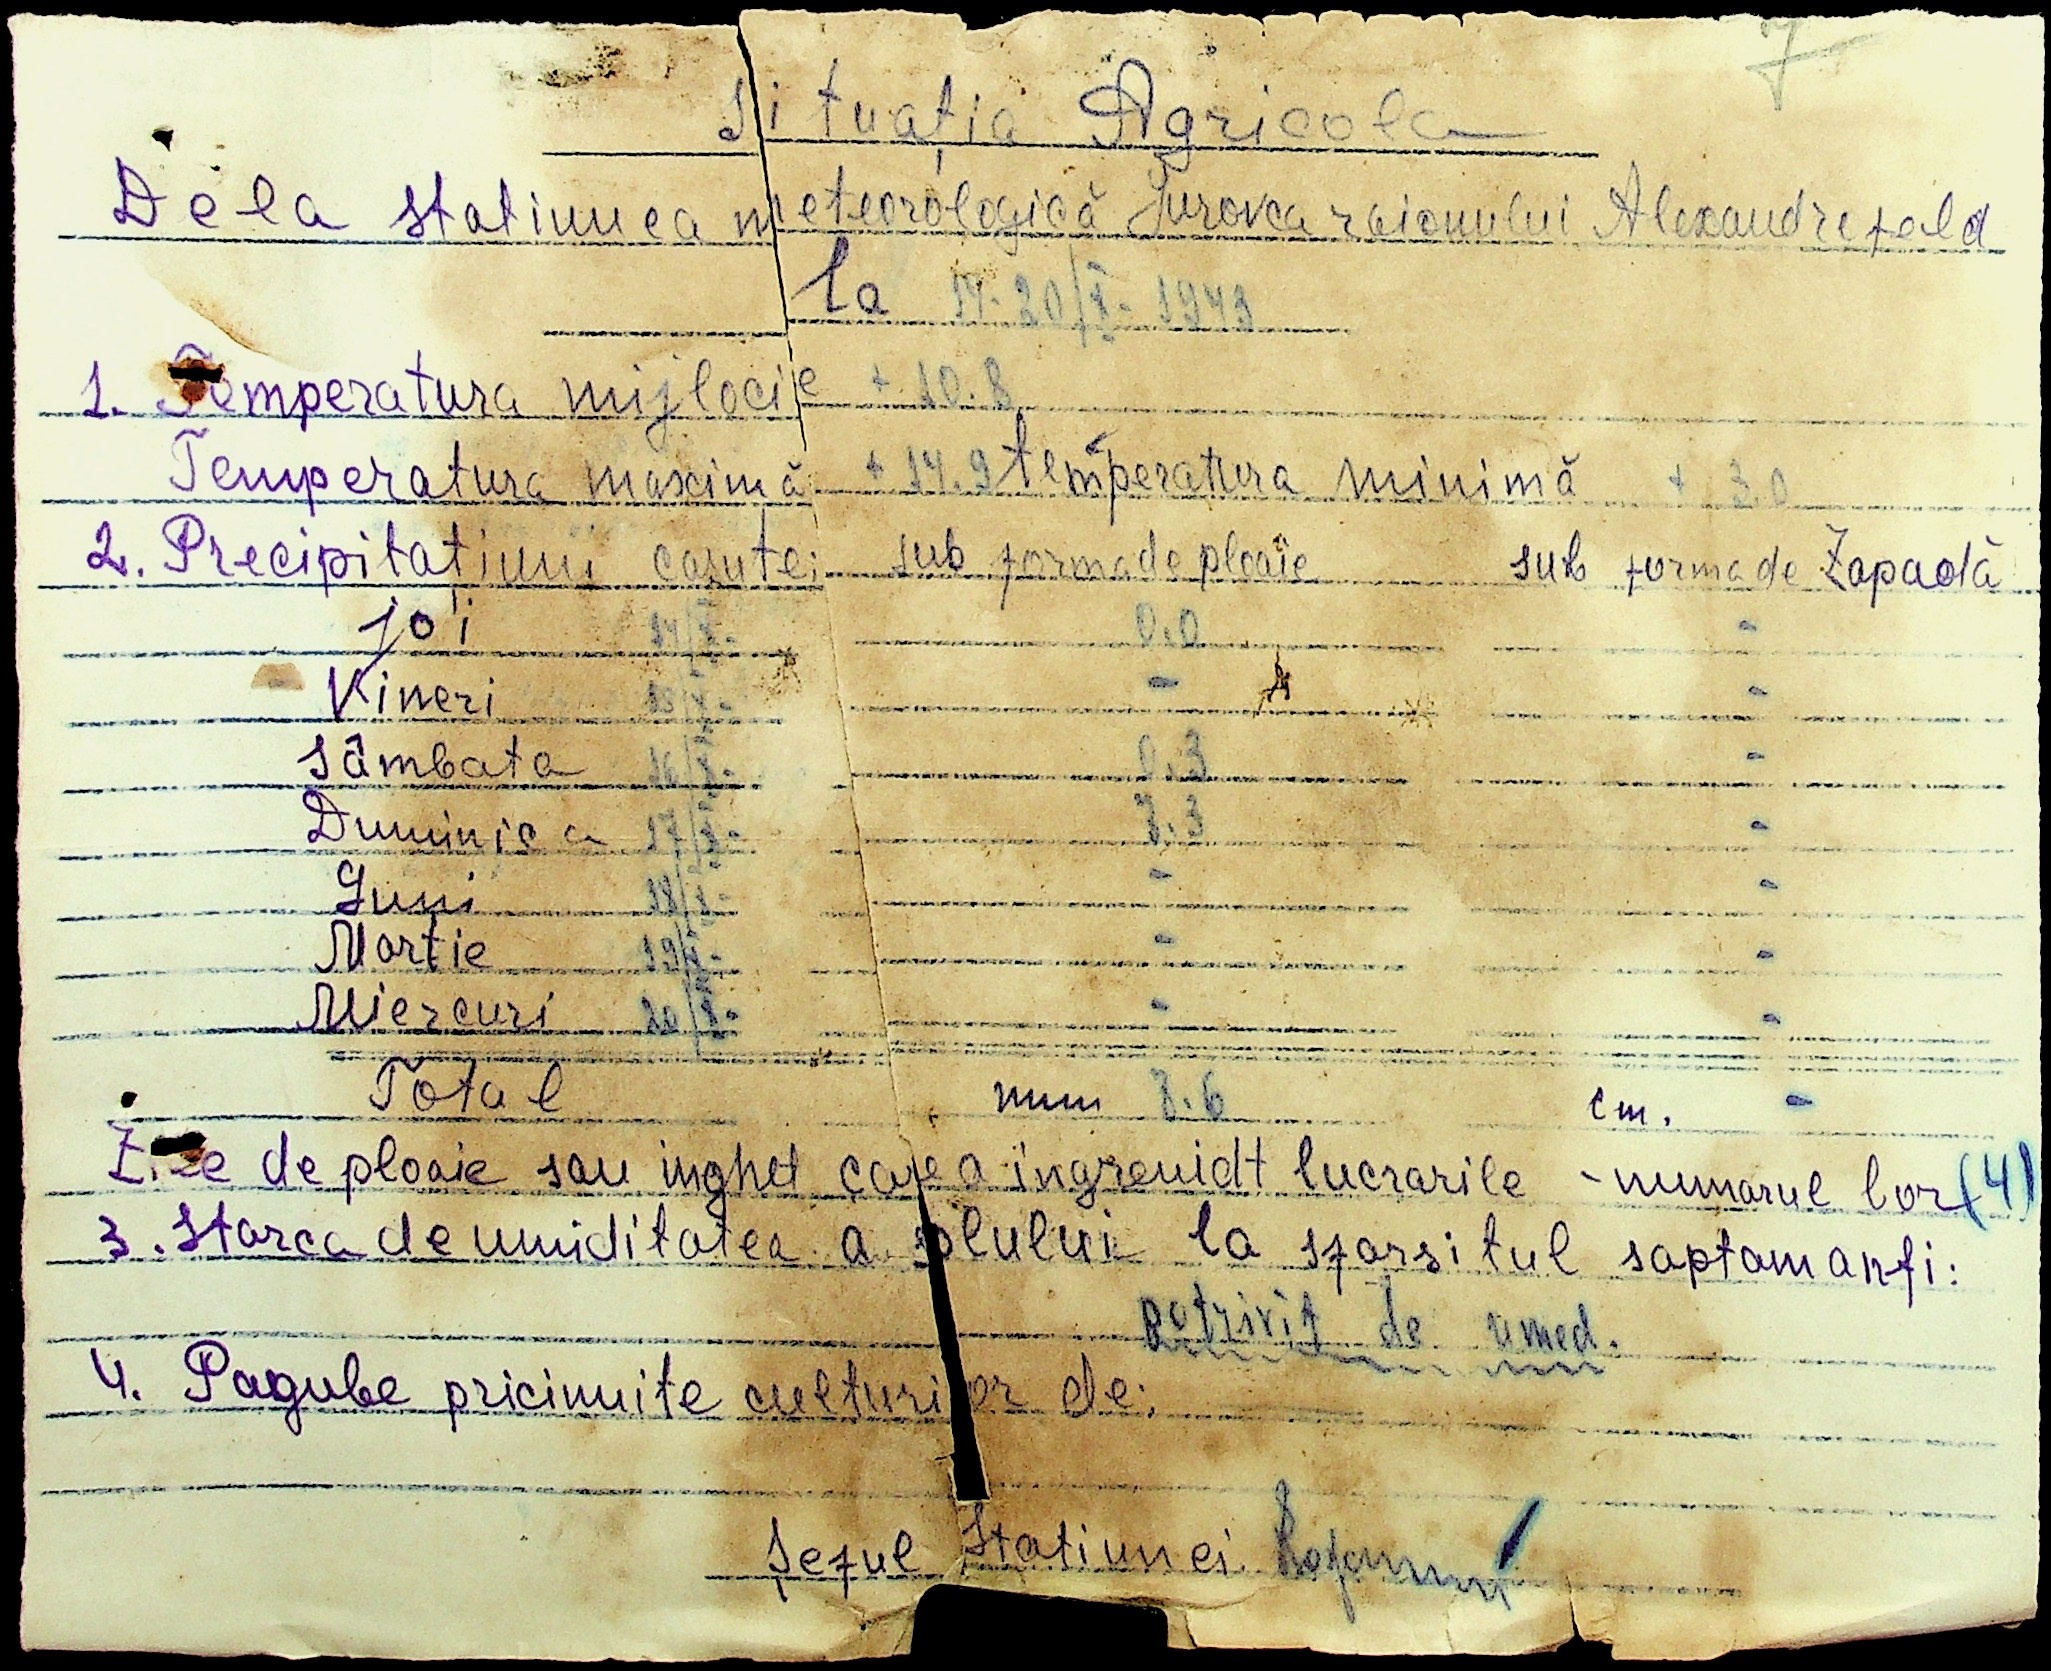 7
Situația Agricola
Dela statiunea meteorologică Jurovca raionului Alexandrefeld
la 14-20/X-1943
1. Temperatura mijlocie + 10.8
Temperatura maximă + 14.9 temperatura minimă + 3.0
2. Precipitatiuni cazute: sub forma de ploaie sub forma de Zapadă
joi 14/X- 0.0 -
Vineri 15/X- - -
Sâmbata 16/X- 0.3 -
Duminica 17/X- 7.3 -
Luni 18/X- - -
Martie 19/X- - -
Miercuri 20/X- - -
Total mm 7.6 cm. -
Zile de ploaie sau inghet care a ingreuidt lucrarile - numarul lor (4)
3. Starea de umiditatea a solului la sfarsitul saptamanfi:
potrivit de umed.
4. Pagube pricinuite culturilor de:
Șeful Statiunei